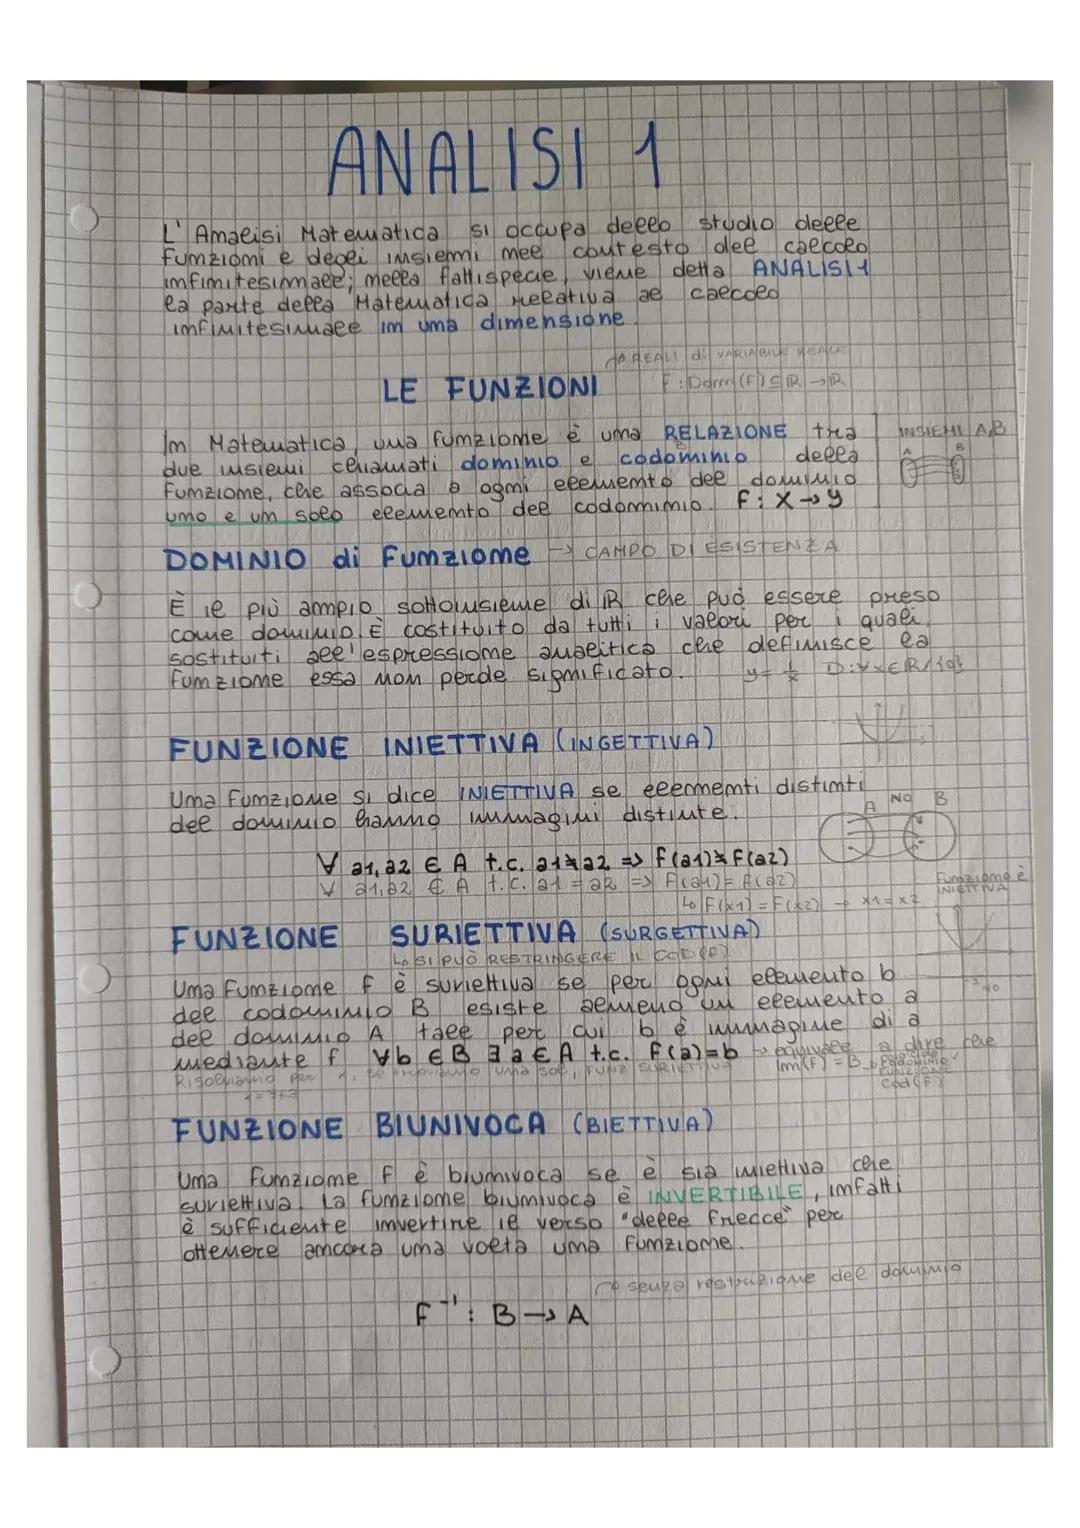 ANALISI 1
L'Analisi Matematica si occupa dello studio delle
funzioni e degli insiemi nel contesto del calcolo
infinitesimale; nella fattispecie, viene detta ANALISI 1
la parte della Matematica relativa al calcolo
infinitesimale in una dimensione.
REALI di VARIABILE REALE
LE FUNZIONI F: Dom(F) ⊆ ℝ → ℝ
In Matematica, una funzione è una RELAZIONE tra
due insiemi chiamati dominio e codominio della
funzione, che associa a ogni elemento del dominio
uno e un solo elemento del codominio. F: X → y
INSIEMI A,B
A B
DOMINIO di Funzione → CAMPO DI ESISTENZA
È il più ampio sottoinsieme di ℝ che può essere preso
come dominio. È costituito da tutti i valori per i quali,
sostituiti all'espressione analitica che definisce la
funzione essa non perde significato. y = 1/x D: ∀x∈ℝ/{0}
FUNZIONE INIETTIVA (INGETTIVA)
Una Funzione si dice INIETTIVA se elementi distinti
del dominio hanno immagini distinte.
A NO B
∀ a1, a2 ∈ A t.c. a1≠a2 ⇒ F(a1)≠F(a2)
∀ a1, a2 ∈ A t.c. a1 = a2 ⇒ F(a1) = F(a2)
↳ F(x1) = F(x2) → x1 = x2
Funzione è
INIETTIVA
FUNZIONE SURIETTIVA (SURGETTIVA)
↳ SI PUÒ RESTRINGERE IL COD(F)
Una Funzione f è suriettiva se per ogni elemento b
del codominio B esiste almeno un elemento a
del dominio A tale per cui b è immagine di a
mediante f ∀b ∈ B ∃ a ∈ A t.c. F(a)=b → equivale a dire che
Im(F) = B
Cod(F)
NO
Risolviamo per x, se troviamo una sol, FUNZ SURIETTIVA
FUNZIONE BIUNIVOCA (BIETTIVA)
Una Funzione F è biunivoca se è sia iniettiva che
suriettiva. La funzione biunivoca è INVERTIBILE, infatti
è sufficiente invertire il verso "delle frecce" per
ottenere ancora una volta una funzione.
senza restrizione del dominio
F⁻¹: B → A